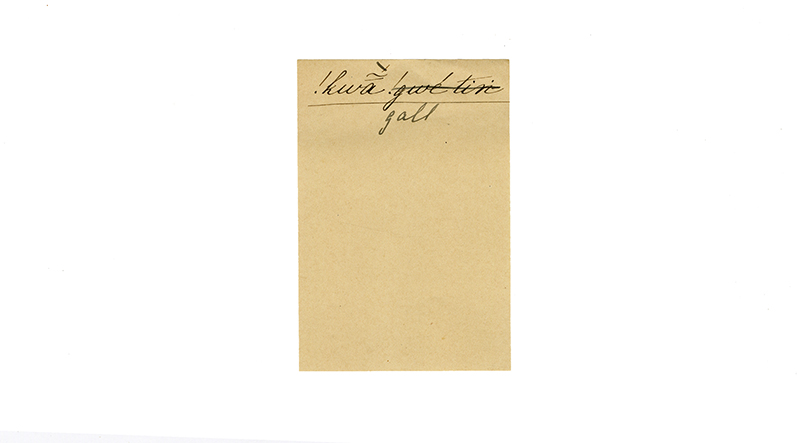 !kwā̃ ! gwé tin
gall